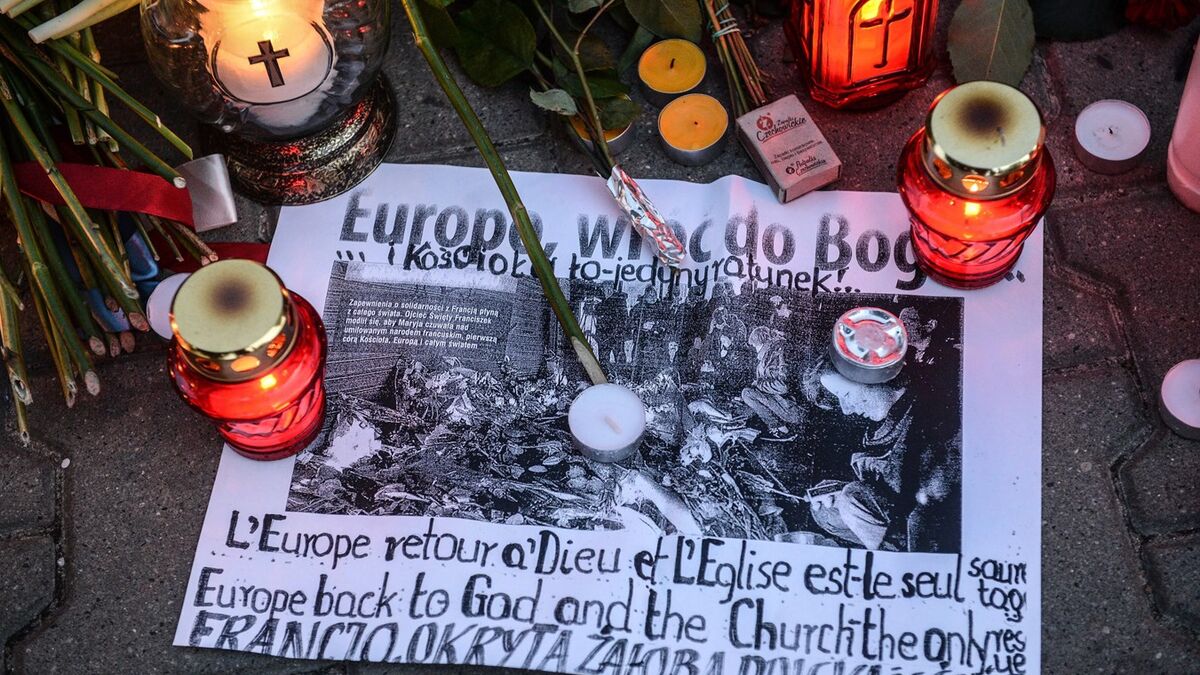 Zapałki
Czechowickie
Europo, wróć do Bog
... i Kościoła, to-jedyny ratunek!..
Zapewnienia o solidarności z Francją płyną
z całego świata. Ojciec Święty Franciszek
modlił się, aby Maryja czuwała nad
umiłowanym narodem francuskim, pierwszą
córą Kościoła. Europą i całym światem
L'Europe retour a'Dieu et L'Eglise est-le seul
Europe back to God and the Church-the only res
cue
FRANCJO, OKRYTA ŻAŁOBĄ